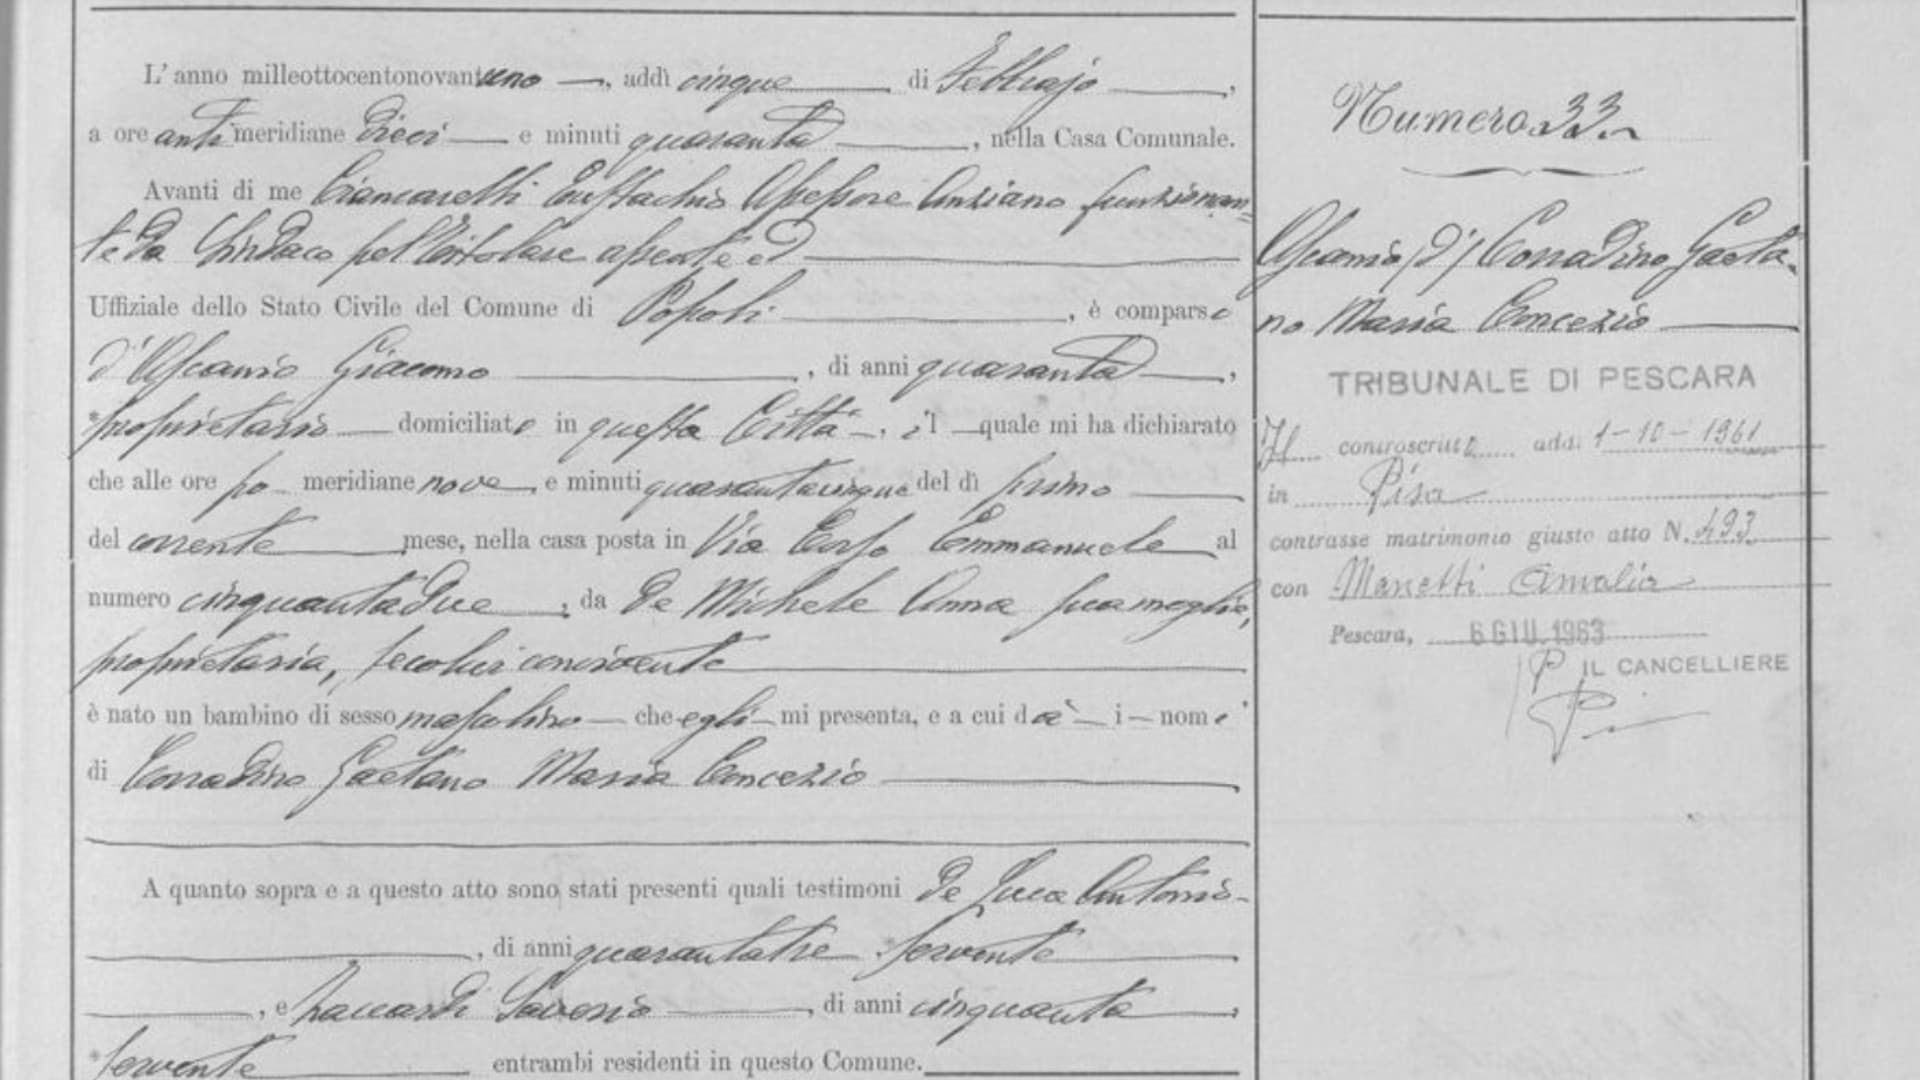 L'anno milleottocentonovantuno, addì cinque di Febbrajo,
a ore antimeridiane dieci e minuti quaranta, nella Casa Comunale.
Avanti di me Ciancarelli Eustachio Assessore Anziano funzionan=
te da Sindaco pel titolare assente ed
Uffiziale dello Stato Civile del Comune di Popoli, è comparso
d'Ascanio Giacomo, di anni quaranta,
proprietario domiciliato in questa Città, il quale mi ha dichiarato
che alle ore pomeridiane nove e minuti quarantacinque del dì primo
del corrente mese, nella casa posta in Via Corso Emmanuele al
numero cinquantadue, da de Michele Anna sua moglie,
proprietaria, secolui convivente
è nato un bambino di sesso mascolino che egli mi presenta, e a cui dà i nomi
di Corradino Gaetano Maria Concezio
A quanto sopra e a questo atto sono stati presenti quali testimoni de Luca Antonio
, di anni quarantatre servente
, e Zaccardi Saverio, di anni cinquanta,
servente entrambi residenti in questo Comune.
Numero 33
Ascanio (d') Corradino Gaeta-
no Maria Concezio
TRIBUNALE DI PESCARA
Il controscritto addì 1-10-1961
in Pisa
contrasse matrimonio giusto atto N. 493
con Manetti Amalia
Pescara, 6 GIU. 1963
P IL CANCELLIERE